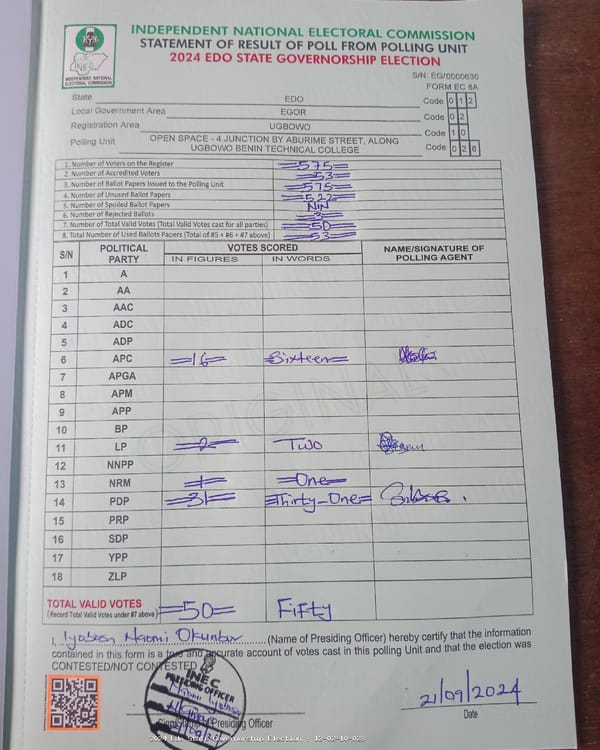 INDEPENDENT NATIONAL ELECTORAL COMMISSION
STATEMENT OF RESULT OF POLL FROM POLLING UNIT
2024 EDO STATE GOVERNORSHIP ELECTION
INEC
INDEPENDENT NATIONAL ELECTORAL COMMISSION
S/N: EG/0000630
FORM EC 8A
State EDO Code 0 1 2
Local Government Area EGOR Code 0 2
Registration Area UGBOWO Code 1 0
Polling Unit OPEN SPACE - 4 JUNCTION BY ABURIME STREET, ALONG UGBOWO BENIN TECHNICAL COLLEGE Code 0 2 8
1. Number of Voters on the Register =575=
2. Number of Accredited Voters =53=
3. Number of Ballot Papers Issued to the Polling Unit =575=
4. Number of Unused Ballot Papers =522=
5. Number of Spoiled Ballot Papers
6. Number of Rejected Ballots =3=
7. Number of Total Valid Votes (Total Valid Votes cast for all parties) =50=
8. Total Number of Used Ballots Papers (Total of #5 + #6 + #7 above) =53=
S/N POLITICAL PARTY VOTES SCORED NAME/SIGNATURE OF POLLING AGENT
IN FIGURES IN WORDS
1 A
2 AA
3 AAC
4 ADC
5 ADP
6 APC =16= =Sixteen=
7 APGA
8 APM
9 APP
10 BP
11 LP =2= Two
12 NNPP
13 NRM =1= =One=
14 PDP =31= =Thirty-One=
15 PRP
16 SDP
17 YPP
18 ZLP
ORIGINAL
TOTAL VALID VOTES =50= Fifty
(Record Total Valid Votes under #7 above)
I, Naomi (Name of Presiding Officer) hereby certify that the information
contained in this form is a true and accurate account of votes cast in this polling Unit and that the election was
CONTESTED/NOT CONTESTED
INEC
PRESIDING OFFICER
Naomi
21/09/2024
Presiding Officer
Date
2024 Edo State Governorship Election - 12-02-10-028